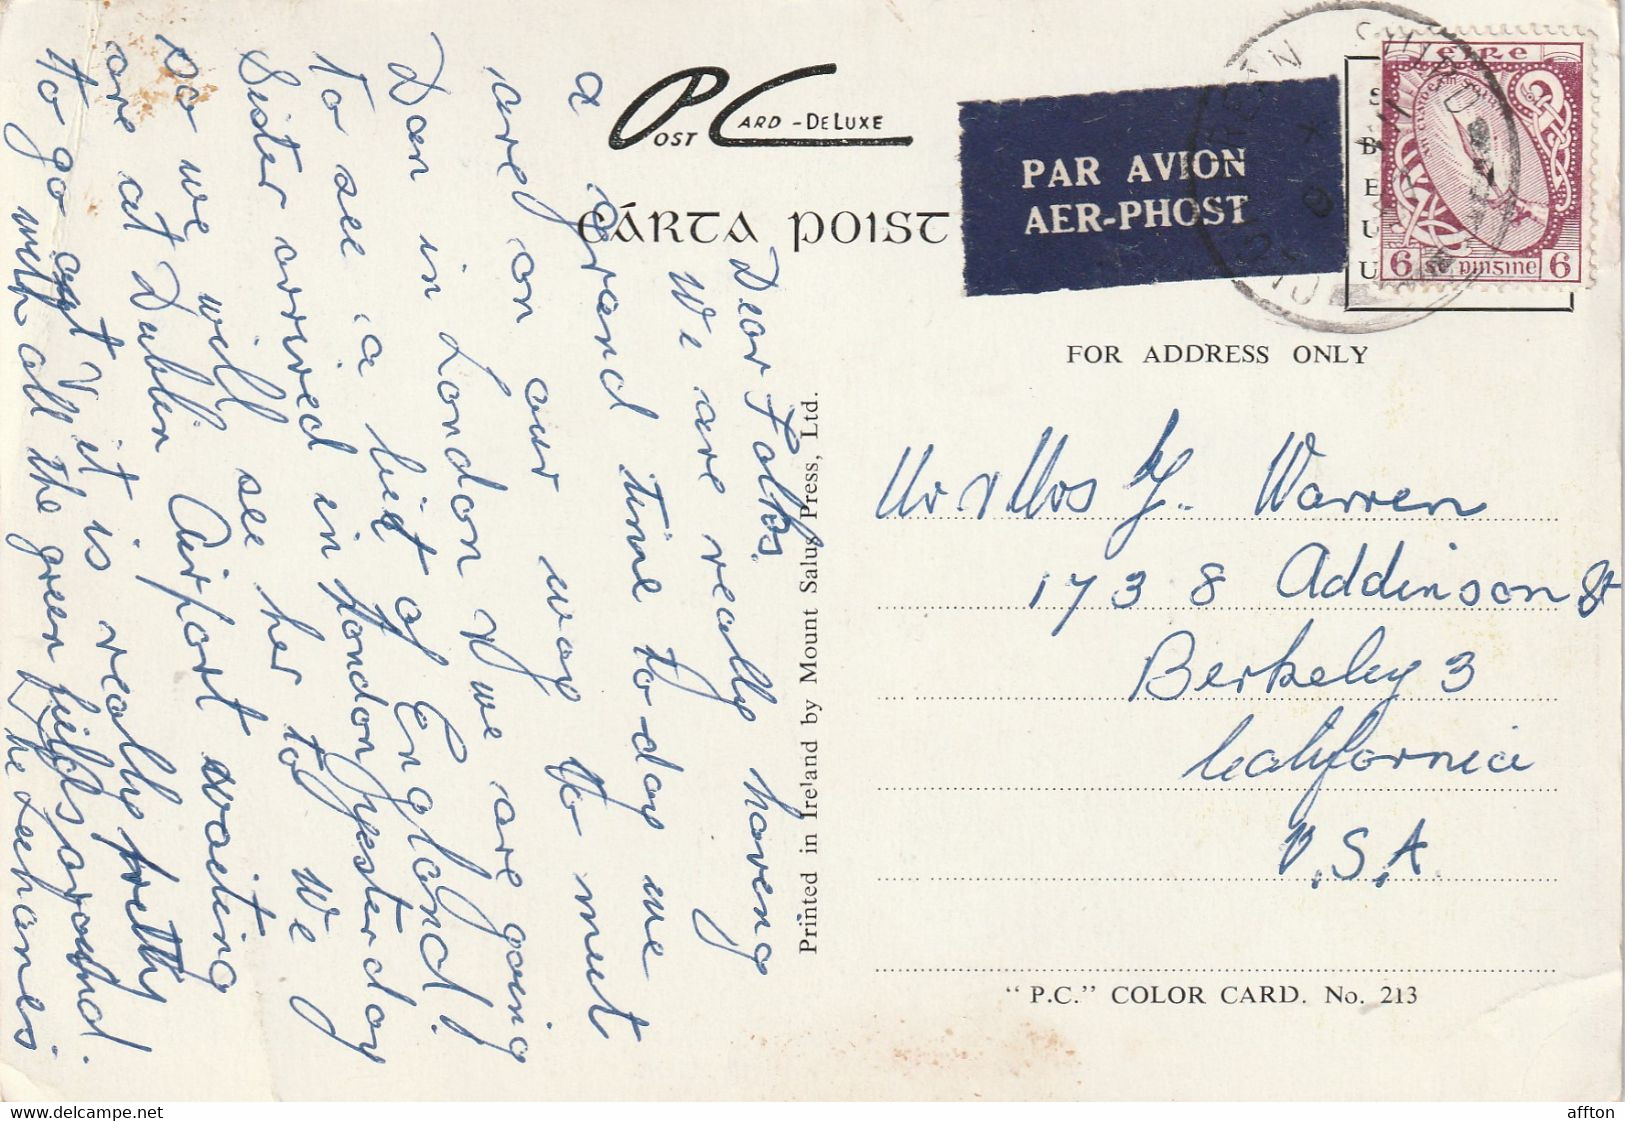 POST CARD - DELUXE
CÁRTA POIST
PAR AVION
AER-PHOST
éire
6 sé pinsine 6
FOR ADDRESS ONLY
Dear Folks.
We are really having
a grand time to-day we
are on our way to meet
Dan in London & we are going
To see a bit of England!
Sister arrived in London yesterday
so we will see her too We
are at Dublin Airport waiting
to go out Yet it is really pretty
with all the green fields around.
The Leehanes.
Printed in Ireland by Mount Salus Press, Ltd.
Mr & Mrs Warren
1738 Addinson St
Berkeley 3
California
U.S.A.
"P.C." COLOR CARD. No. 213
affton